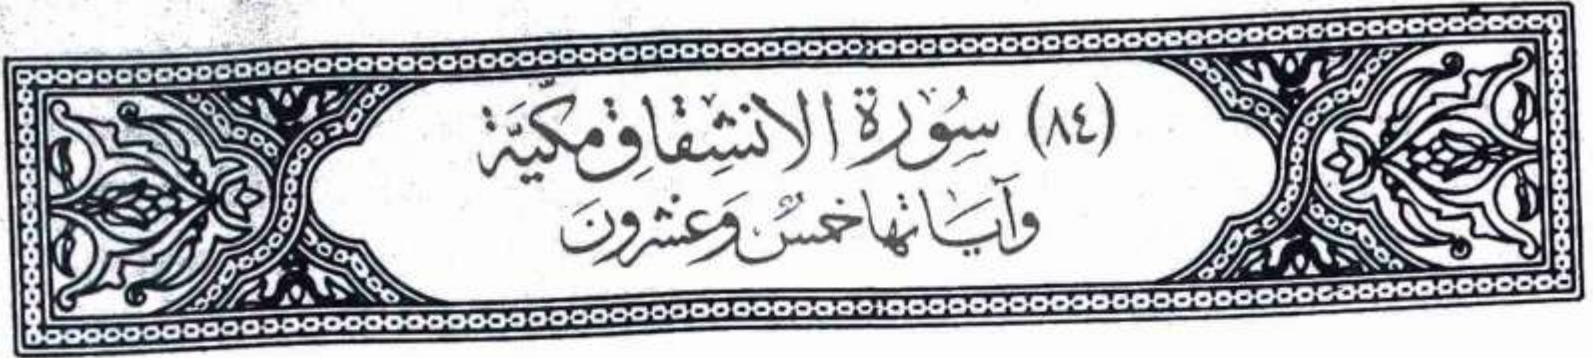 (٨٤) سُورَة الانشِقاقِ مكيَّة
وَآيَاتها خمسٌ وَعشرونَ